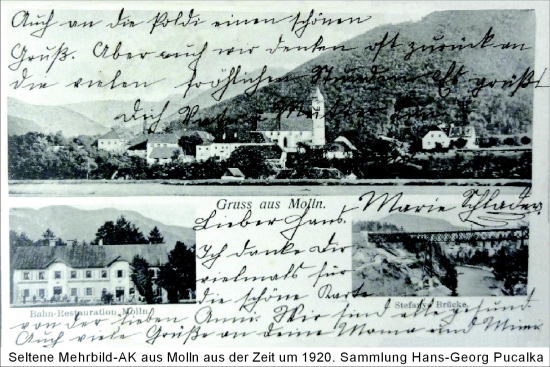 Auch an die Poldi einen schönen
Gruß. Aber auch wir denken oft zurück an
die vielen fröhlichen Stunden. Es grüßt
Dich
Gruss aus Molln.
Marie Schlader
Lieber Hans!
Ich danke Dir
vielmals für
die schöne Karte
Bahn-Restauration Molln.
Stefanie Brücke.
von der lieben Anna. Wir sind alle gesund
Auch viele Grüße an deine Mama und
Seltene Mehrbild-AK aus Molln aus der Zeit um 1920. Sammlung Hans-Georg Pucalka